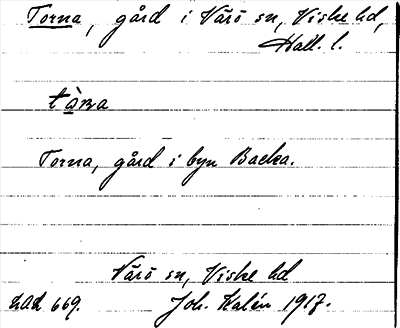 Torna, gård i Värö sn, Viske hd,
Hall. l.
tàrna
Torna, gård i byn Backa.
Värö sn, Viske hd
Joh. Kalén 1917.